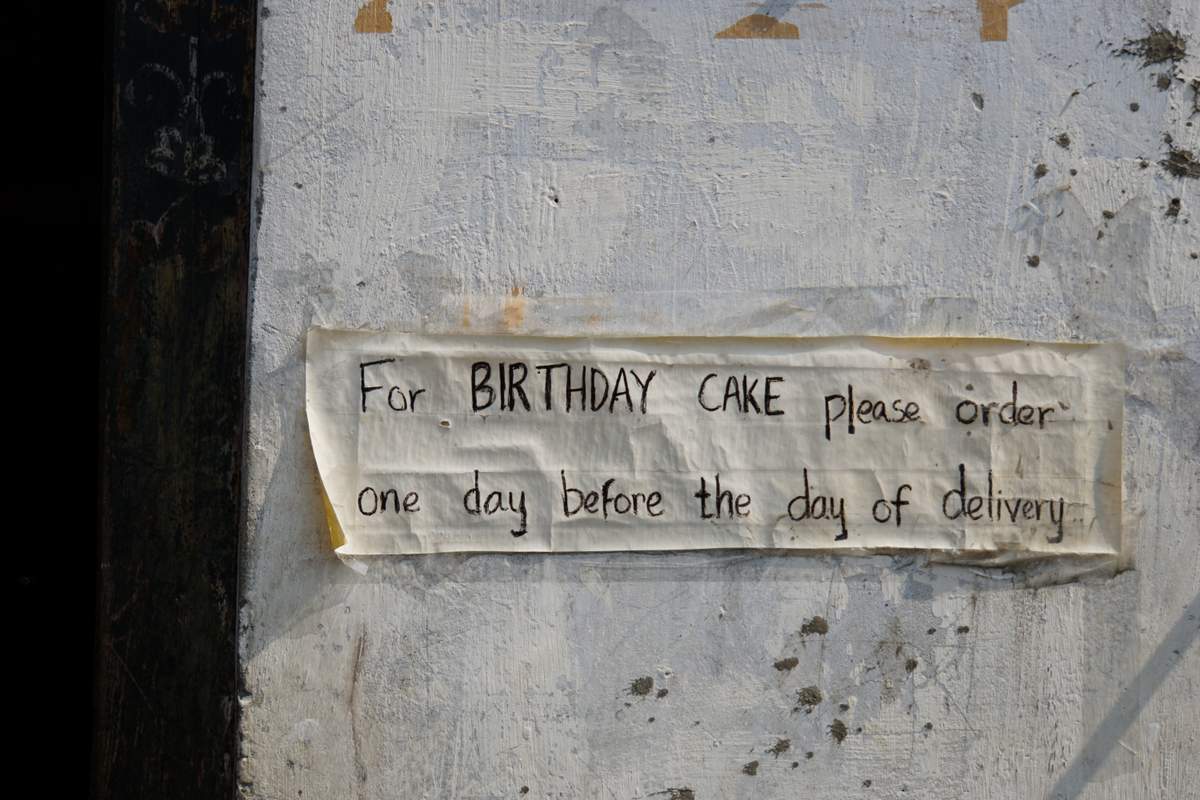 For BIRTHDAY CAKE please order
one day before the day of delivery